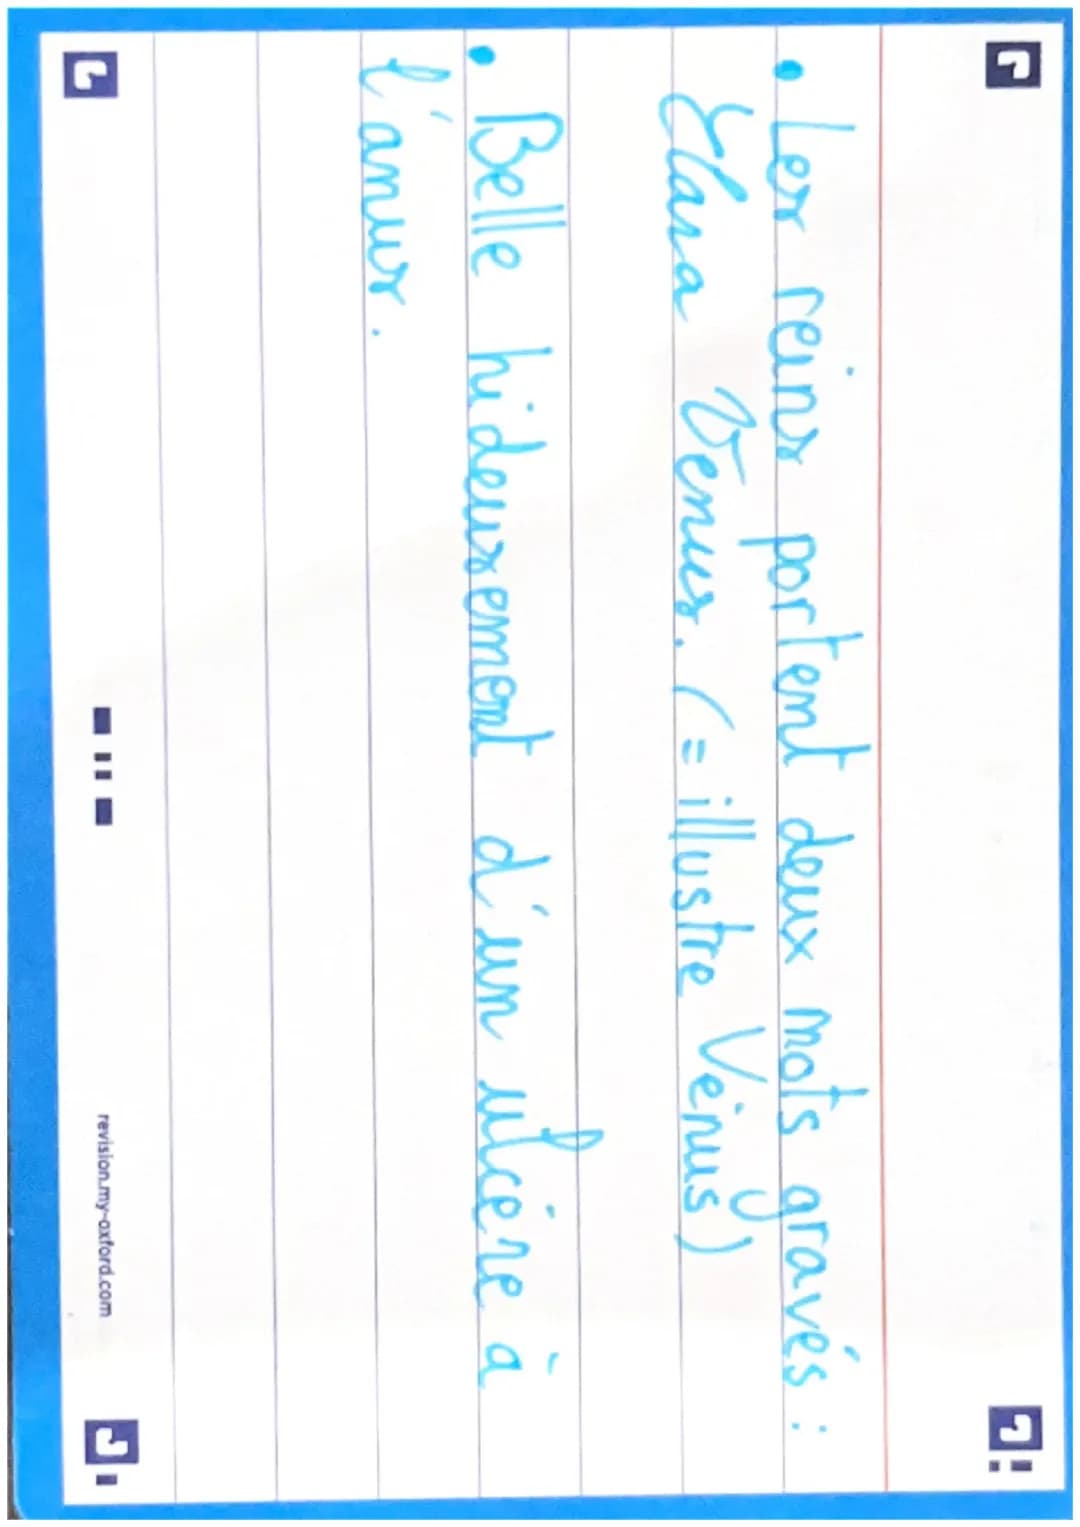 • Les reins portent deux mots gravés :
Clara Vénus. (= illustre Vénus)
• Belle hideusement d'un ulcère à
l'anus.
revision.my-oxford.com